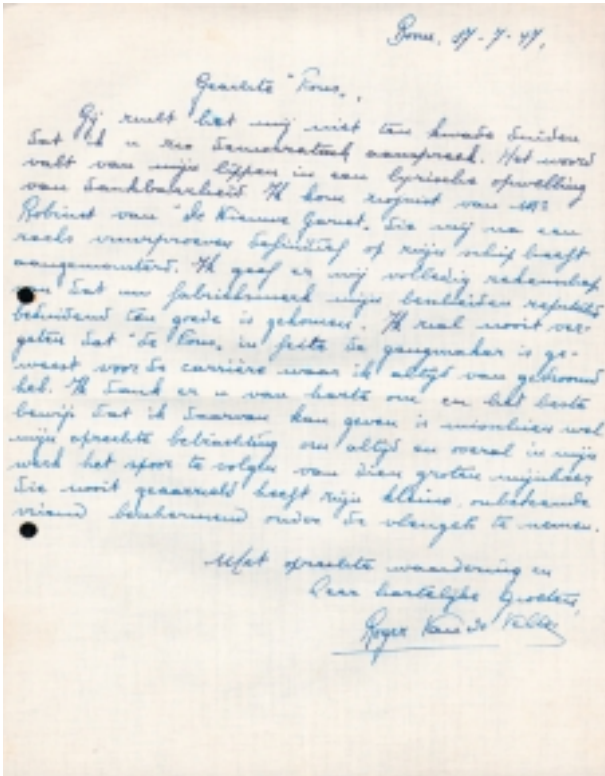 Boom, 17-7-47.
Geachte "Fons",
Gij zult het mij niet ten kwade duiden
dat ik u zoo democratisch aanspreek. Het woord
valt van mijn lippen in een lyrische opwelling
van dankbaarheid. Ik kom zoojuist van Mr
Robinet van "De Nieuwe Gazet", die mij na een
reeks vuurproeven definitief op zijn schip heeft
aangemonsterd. Ik geef er mij volledig rekenschap
van dat uw fabrieksmerk mijn bescheiden reputatie
beduidend ten goede is gekomen. Ik zal nooit ver-
geten dat "de Fons" in feite de gangmaker is ge-
weest voor de carrière waar ik altijd van gedroomd
heb. Ik dank er u van harte om en het beste
bewijs dat ik daarvan kan geven is misschien wel
mijn oprechte betrachting om altijd en overal in mijn
werk het spoor te volgen van dien groten mijnheer
die nooit geaarzeld heeft zijn kleine, onbekende
vriend beschermend onder de vleugels te nemen.
Met oprechte waardering en
zeer hartelijke groeten,
Roger Van de Velde